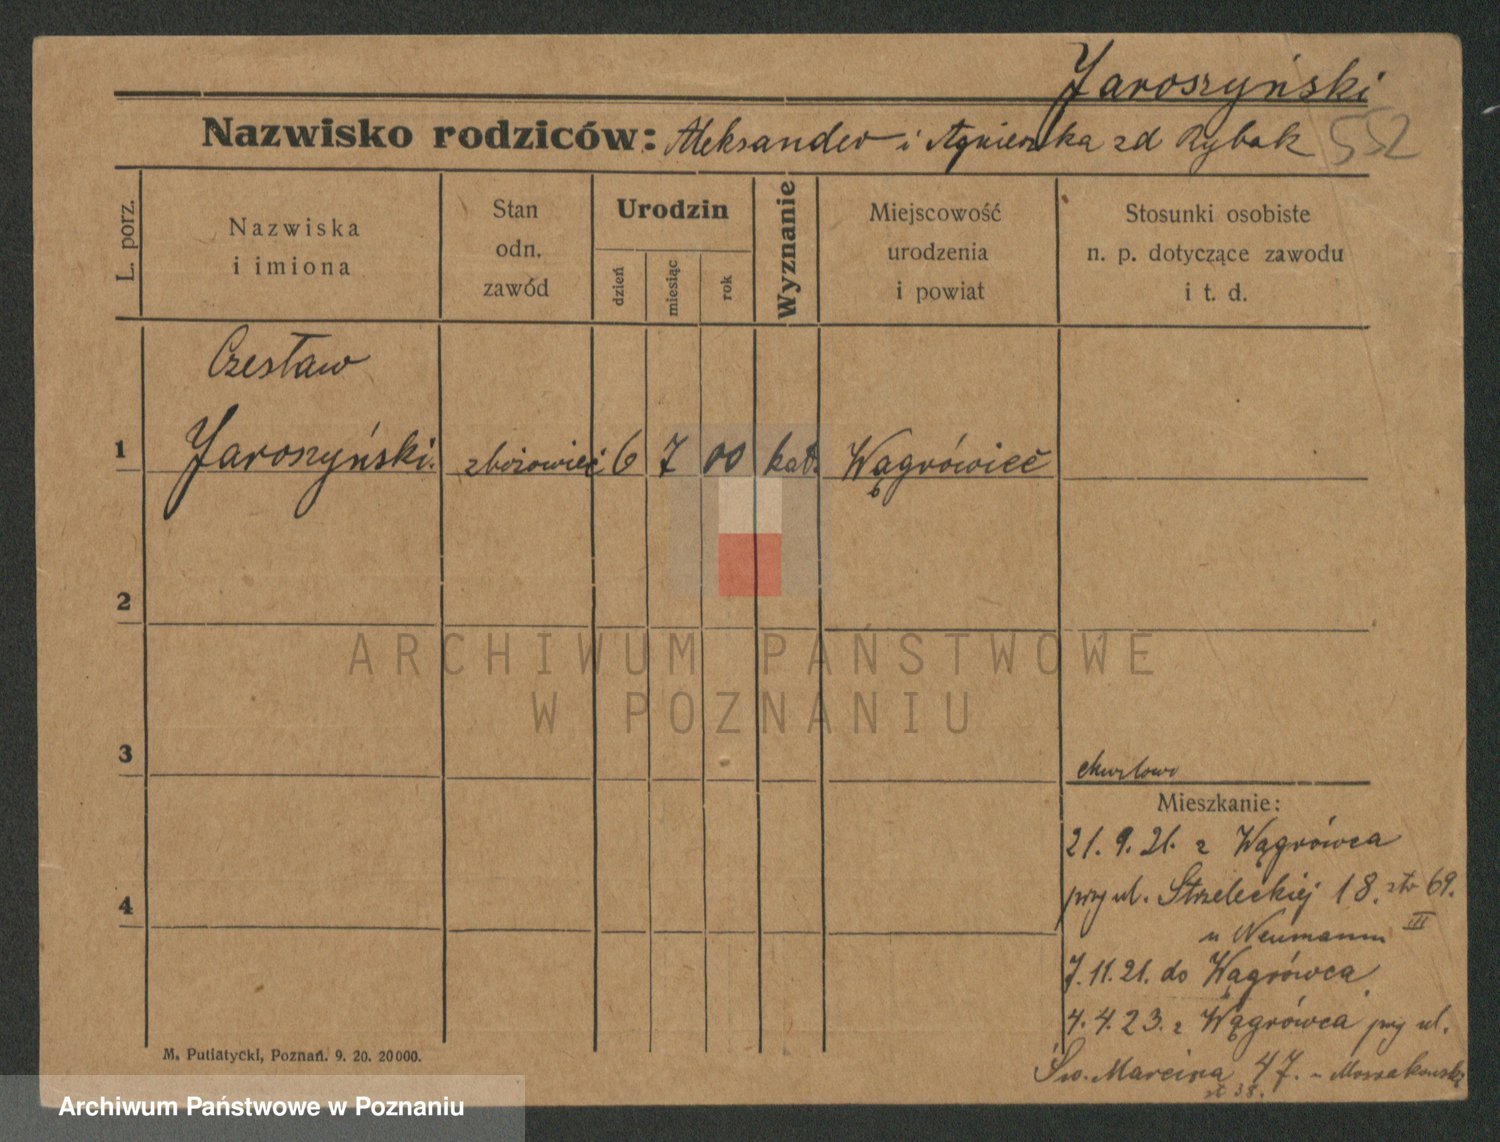 Jaroszyński
Nazwisko rodziców: Aleksander i Agnieszka zd Rybak 552
L. porz.
Nazwiska
i imiona
Stan
odn.
zawód
Urodzin
dzień
miesiąc
rok
Wyznanie
Miejscowość
urodzenia
i powiat
Stosunki osobiste
n. p. dotyczące zawodu
i t. d.
Czesław
1 Jaroszyński. zbożowieć 6 7 00 kat. Wągrówieć
2
3
4
Mieszkanie:
21. 9. 21. z Wągrówca
przy ul. Strzeleckiej 18. 69.
u Neumann III
7. 11. 21. do Wągrówca.
4. 4. 23. z Wągrówca przy ul.
Św. Marcina 47.
38.
M. Putiatycki, Poznań. 9. 20. 20000.
ARCHIWUM PAŃSTWOWE
W POZNANIU
Archiwum Państwowe w Poznaniu